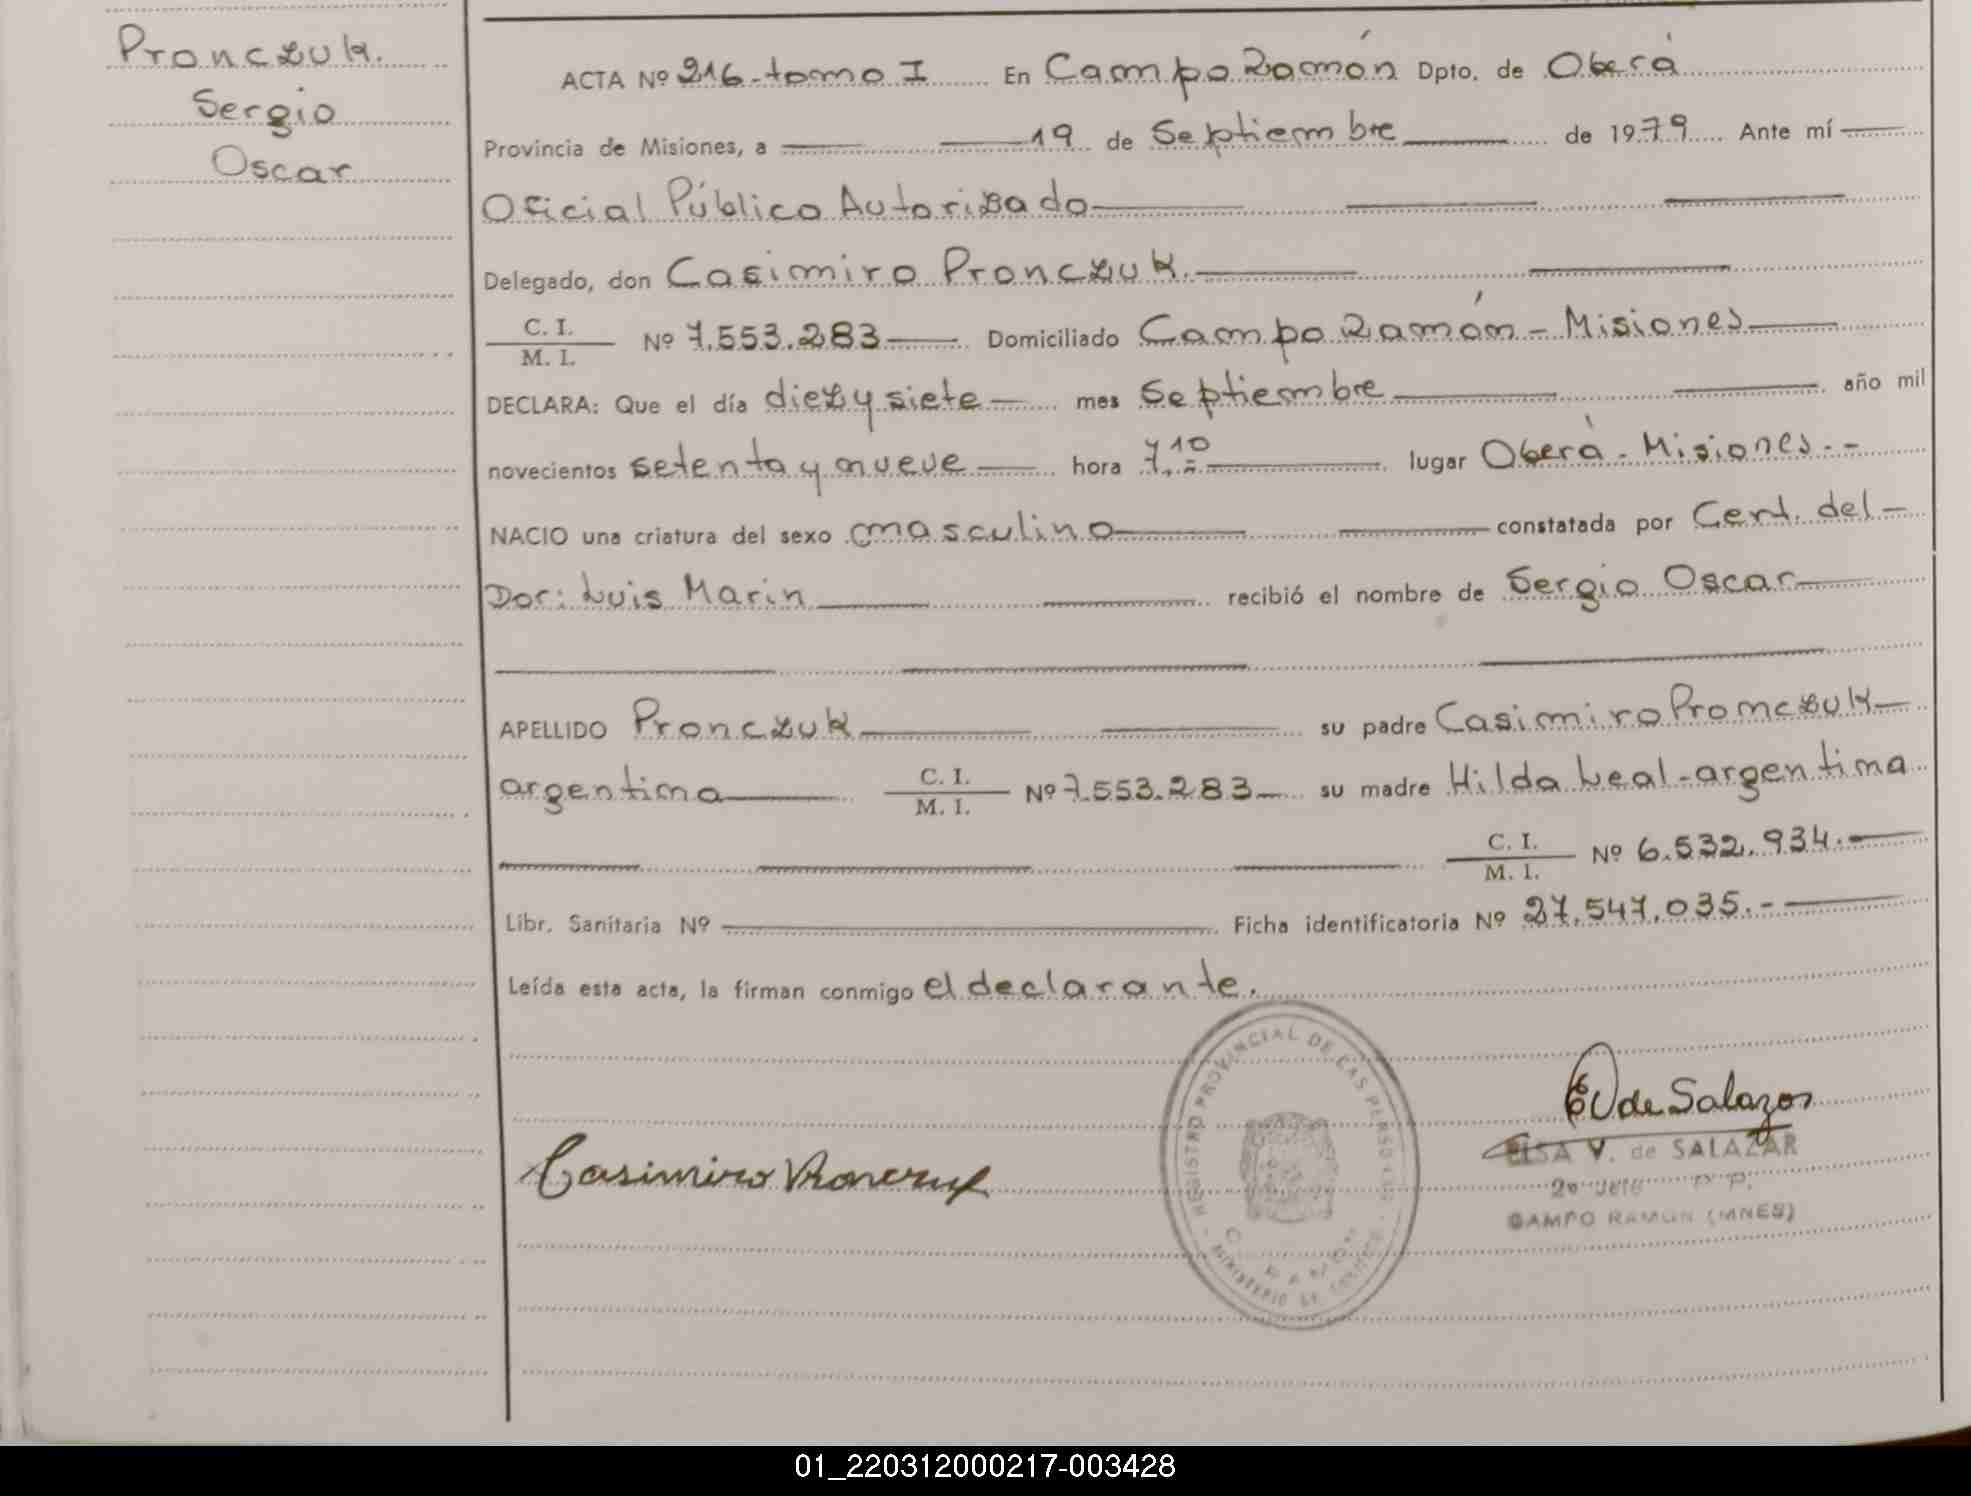 Pronczuk.
Sergio
Oscar
ACTA Nº 216-tomo I En Campo Ramón Dpto. de Oberá
Provincia de Misiones, a 19 de Septiembre de 1979 Ante mí
Oficial Público Autorizado
Delegado, don Casimiro Pronczuk.
C. I.
M. I. Nº 7.553.283 Domiciliado Campo Ramón - Misiones
DECLARA: Que el día diez y siete mes Septiembre año mil
novecientos setenta y nueve hora 7.10 lugar Oberá - Misiones.-
NACIO una criatura del sexo masculino constatada por Cert. del
Dor: Luis Marin recibió el nombre de Sergio Oscar
APELLIDO Pronczuk su padre Casimiro Pronczuk
argentina C. I. M. I. Nº 7.553.283 su madre Hilda Leal - argentina
C. I. M. I. Nº 6.532.934.-
Libr. Sanitaria Nº Ficha identificatoria Nº 27.547.035.-
Leída esta acta, la firman conmigo el declarante.
Casimiro Pronczuk
REGISTRO PROVINCIAL DE LAS PERSONAS
MINISTERIO DE
E V de Salazar
ELSA V. de SALAZAR
CAMPO RAMON (MNES)
01_220312000217-003428